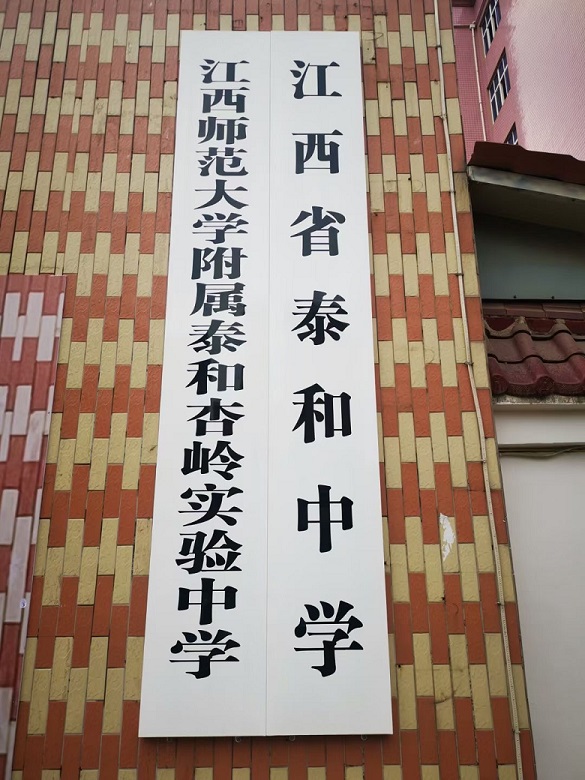 江西省泰和中学
江西师范大学附属泰和杏岭实验中学